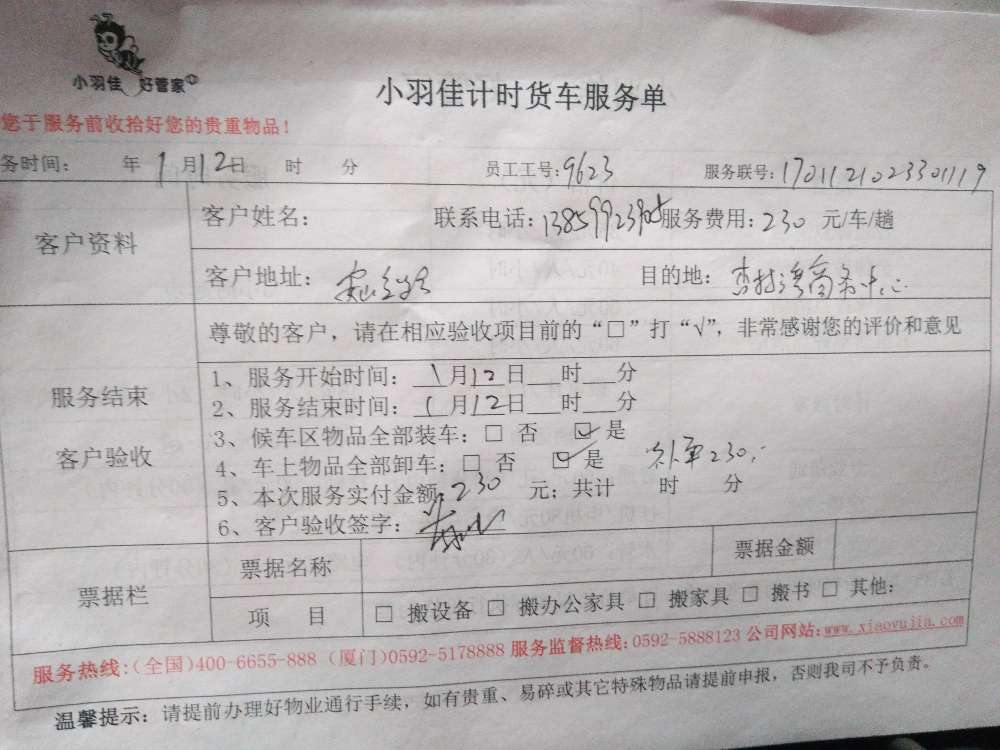 小羽佳 好管家
小羽佳计时货车服务单
您于服务前收拾好您的贵重物品！
务时间： 年 1月12日 时 分 员工工号：9623 服务联号：1701121023301119
客户资料
客户姓名： 联系电话： 服务费用：230 元/车/趟
客户地址： 目的地：杏林湾商务中心
尊敬的客户，请在相应验收项目前的“□”打“√”，非常感谢您的评价和意见
服务结束
客户验收
1、服务开始时间：1月12日___时___分
2、服务结束时间：1月12日___时___分
3、候车区物品全部装车：□ 否 ☑ 是
4、车上物品全部卸车：□ 否 ☑ 是 230.
5、本次服务实付金额：230 元；共计 时 分
6、客户验收签字：
票据栏
票据名称 票据金额
项 目 □ 搬设备 □ 搬办公家具 □ 搬家具 □ 搬书 □ 其他：
服务热线：（全国）400-6655-888（厦门）0592-5178888 服务监督热线：0592-5888123 公司网站：www.xiaoyujia.com
温馨提示：请提前办理好物业通行手续，如有贵重、易碎或其它特殊物品请提前申报，否则我司不予负责。